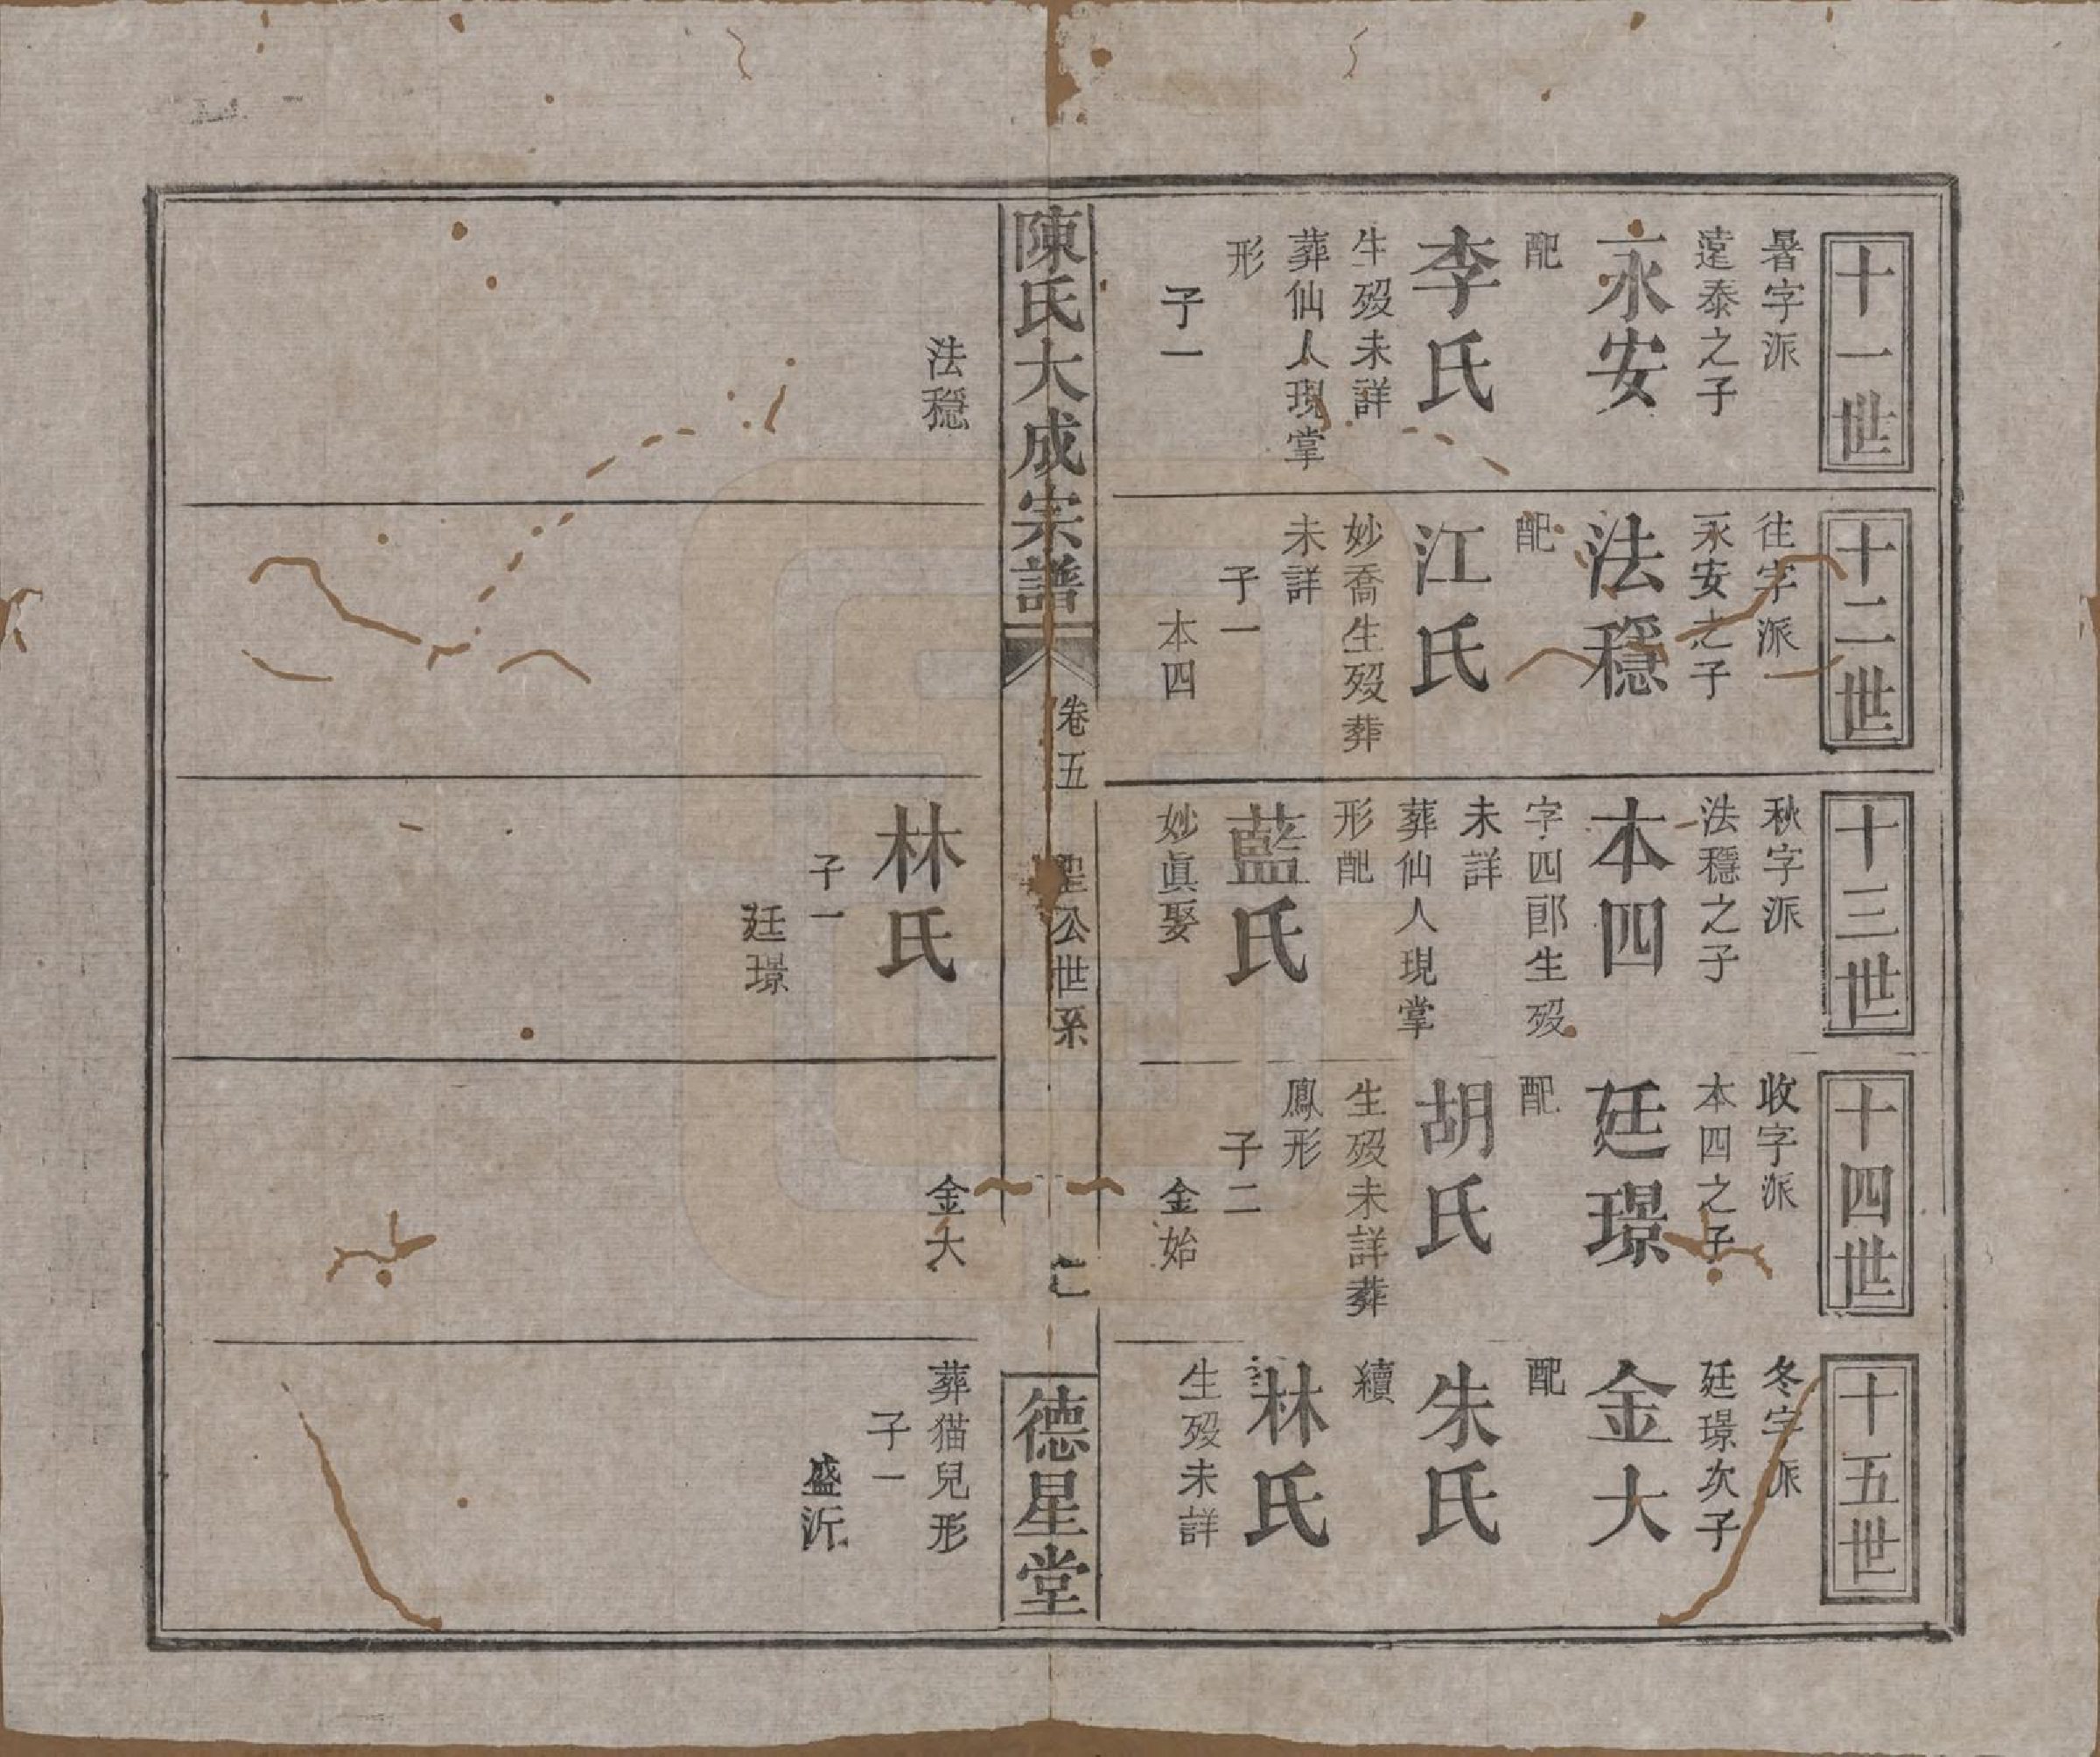 十一世
暑字派
遠泰之子
永安
配
李氏
生歿未詳
葬仙人現掌
形
子一
法穩
十二世
往字派
永安之子
法穩
配
江氏
妙喬生歿葬
未詳
子一
本四
十三世
秋字派
法穩之子
本四
字四郎生歿
未詳
葬仙人現掌
形配
藍氏
妙眞娶
林氏
子一
廷璟
十四世
收字派
本四之子
廷璟
配
胡氏
生歿未詳葬
鳳形
子二
金始
金大
十五世
冬字派
廷璟次子
金大
配
朱氏
續
林氏
生歿未詳
葬猫兒形
子一
盛沂
陳氏大成宗譜
卷五
公世系
德星堂